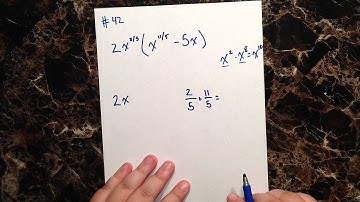 # 42
2x^{2/5}(x^{11/5} - 5x)
x² · x⁸ = x¹⁰
2x
2/5 + 11/5 =